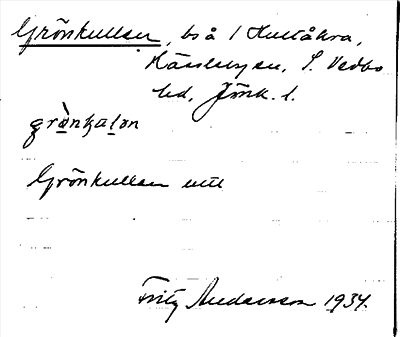 Grönkullen, bs å 1 Hultåkra,
Hässleryen, S. Vedbo
hd, Jönk. l.
grö̀nkalən
Grönkullen utt
Fritz Andersson 1934.